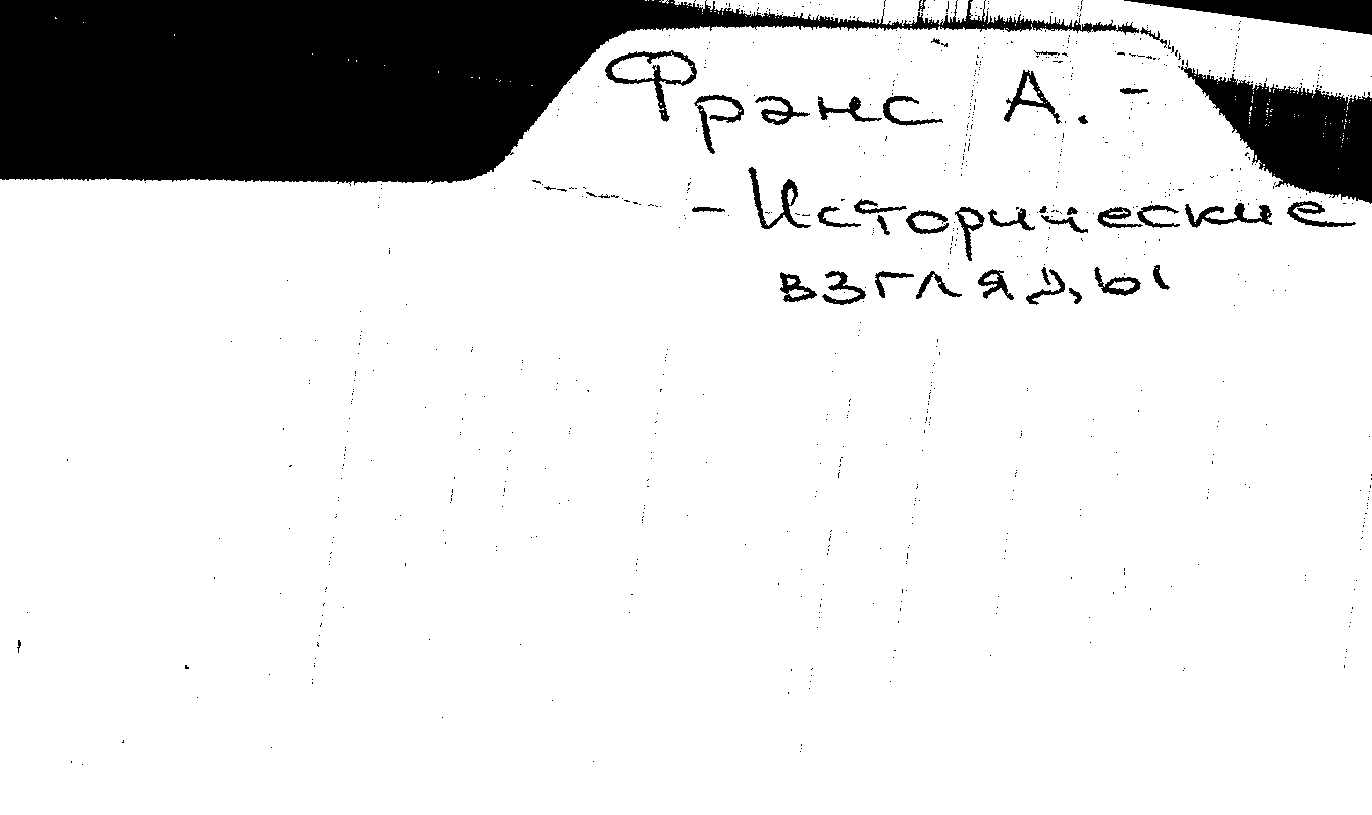 Франс А. -
- Исторические
взгляды